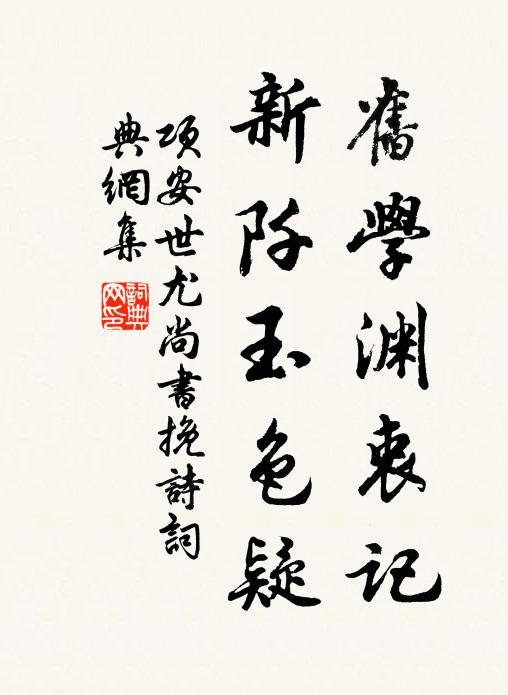 舊學淵衷記
新阡玉色疑
項安世尤尚書挽詩詞
典網集
詞典網印